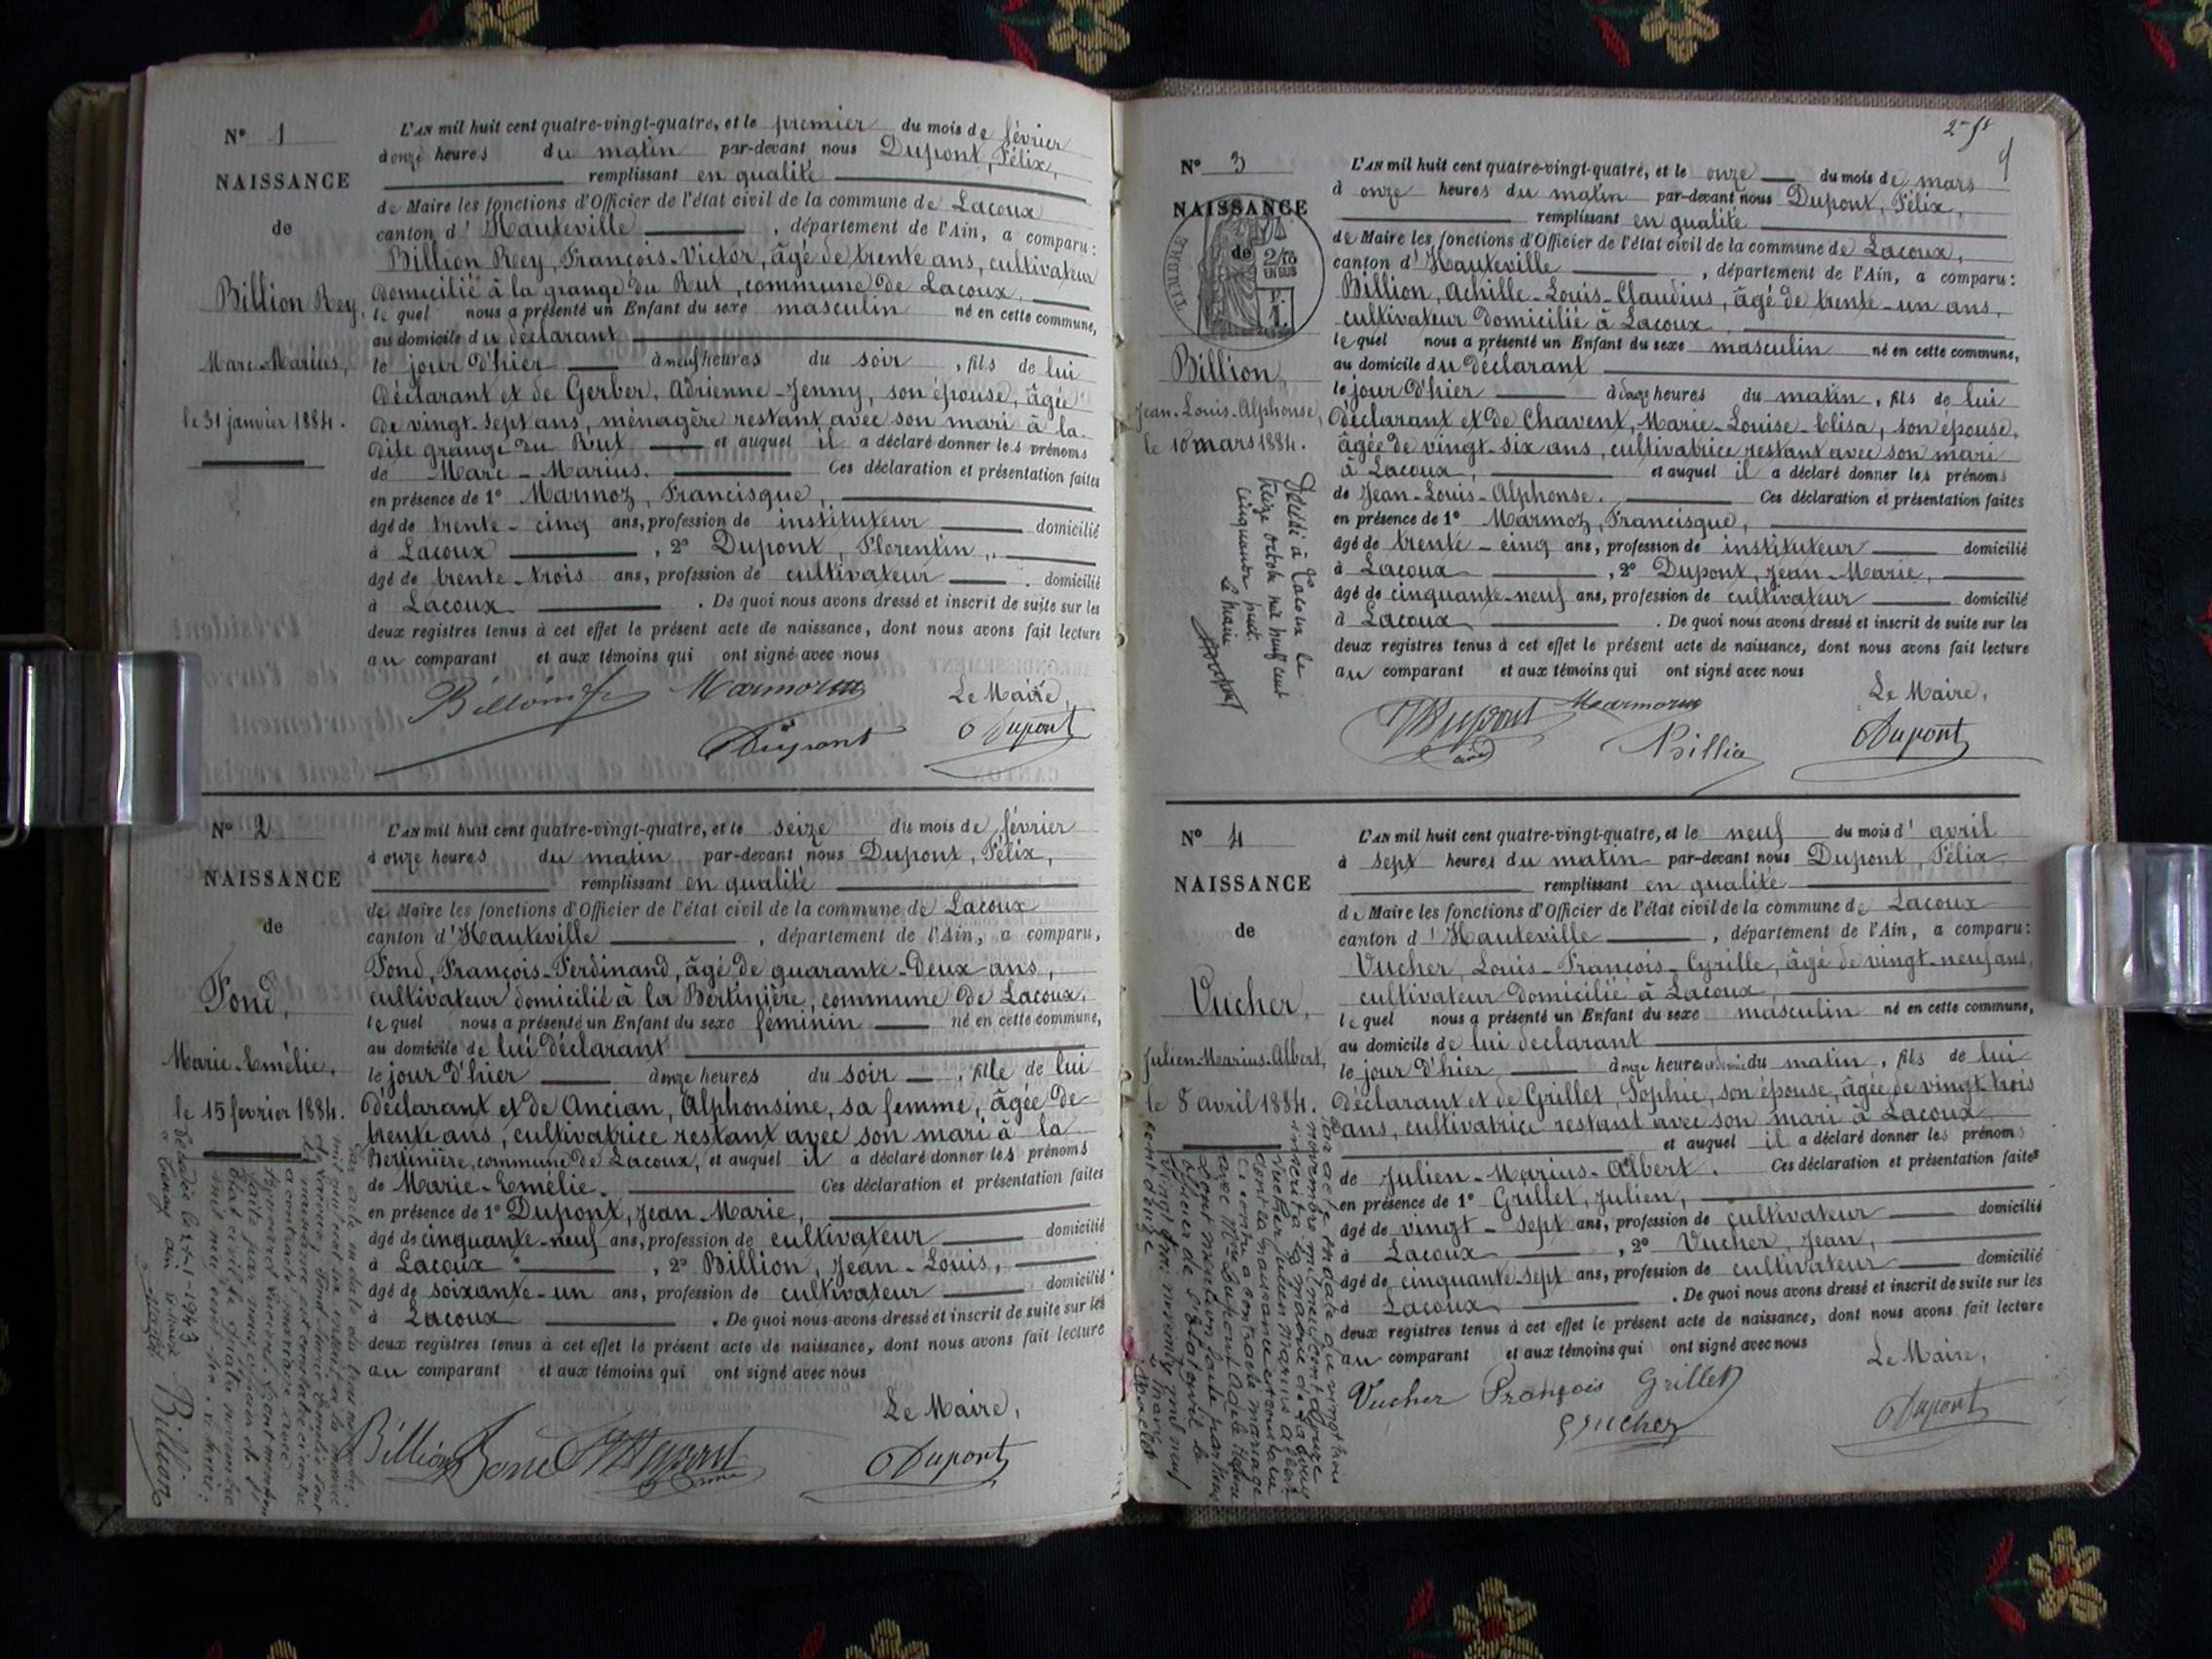 N° 1
NAISSANCE
de
Billion Rey,
Marc-Marius,
le 31 janvier 1884.
L'AN mil huit cent quatre-vingt-quatre, et le premier du mois de février
à onze heures du matin par-devant nous Dupont, Félix,
remplissant en qualité
de Maire les fonctions d'Officier de l'état civil de la commune de Lacoux
canton d'Hauteville, département de l'Ain, a comparu:
Billion Rey, François-Victor, âgé de trente ans, cultivateur
domicilié à la grange du Rut, commune de Lacoux,
le quel nous a présenté un Enfant du sexe masculin né en cette commune,
au domicile du déclarant
le jour d'hier à neuf heures du soir, fils de lui
déclarant et de Gerber, Adrienne-Jenny, son épouse, âgée
de vingt-sept ans, ménagère restant avec son mari à la
dite grange du Rut et auquel il a déclaré donner les prénoms
de Marc-Marius. Ces déclaration et présentation faites
en présence de 1° Marmoz, Francisque,
âgé de trente-cinq ans, profession de instituteur domicilié
à Lacoux, 2° Dupont, Florentin,
âgé de trente-trois ans, profession de cultivateur. domicilié
à Lacoux. De quoi nous avons dressé et inscrit de suite sur les
deux registres tenus à cet effet le présent acte de naissance, dont nous avons fait lecture
au comparant et aux témoins qui ont signé avec nous
Le Maire,
Dupont
Dupont
N° 2
NAISSANCE
de
Fond,
Marie-Emélie,
le 15 février 1884.
L'AN mil huit cent quatre-vingt-quatre, et le seize du mois de février
à onze heures du matin par-devant nous Dupont, Félix,
remplissant en qualité
de Maire les fonctions d'Officier de l'état civil de la commune de Lacoux
canton d'Hauteville, département de l'Ain, a comparu,
Fond, François-Ferdinand, âgé de quarante-deux ans,
cultivateur domicilié à la Bertinière, commune de Lacoux,
le quel nous a présenté un Enfant du sexe féminin né en cette commune,
au domicile de lui déclarant
le jour d'hier à onze heures du soir, fille de lui
déclarant et de Ancian, Alphonsine, sa femme, âgée de
trente ans, cultivatrice restant avec son mari à la
Bertinière, commune de Lacoux, et auquel il a déclaré donner les prénoms
de Marie-Emélie. Ces déclaration et présentation faites
en présence de 1° Dupont, Jean-Marie,
âgé de cinquante-neuf ans, profession de cultivateur domicilié
à Lacoux, 2° Billion, Jean-Louis,
âgé de soixante-un ans, profession de cultivateur domicilié
à Lacoux. De quoi nous avons dressé et inscrit de suite sur les
deux registres tenus à cet effet le présent acte de naissance, dont nous avons fait lecture
au comparant et aux témoins qui ont signé avec nous
Le Maire,
Billion Dupont
Billion
N° 3
NAISSANCE
de
TIMBRE
2/10
EN SUS
Billion,
Jean-Louis-Alphonse,
le 10 mars 1884.
Décédé à Lacoux le
treize octobre mil neuf cent
cinquante huit.
Le Maire
L'AN mil huit cent quatre-vingt-quatre, et le onze du mois de mars
à onze heures du matin par-devant nous Dupont, Félix,
remplissant en qualité
de Maire les fonctions d'Officier de l'état civil de la commune de Lacoux,
canton d'Hauteville, département de l'Ain, a comparu:
Billion, Achille-Louis-Claudius, âgé de trente-un ans,
cultivateur domicilié à Lacoux,
le quel nous a présenté un Enfant du sexe masculin né en cette commune,
au domicile du déclarant
le jour d'hier à heures du matin, fils de lui
déclarant et de Chavent, Marie-Louise-Elisa, son épouse,
âgée de vingt-six ans, cultivatrice restant avec son mari
à Lacoux, et auquel il a déclaré donner les prénoms
de Jean-Louis-Alphonse. Ces déclaration et présentation faites
en présence de 1° Marmoz, Francisque,
âgé de trente-cinq ans, profession de instituteur domicilié
à Lacoux, 2° Dupont, Jean-Marie,
âgé de cinquante-neuf ans, profession de cultivateur domicilié
à Lacoux. De quoi nous avons dressé et inscrit de suite sur les
deux registres tenus à cet effet le présent acte de naissance, dont nous avons fait lecture
au comparant et aux témoins qui ont signé avec nous
Le Maire,
Dupont
Dupont
N° 4
NAISSANCE
de
Vucher,
Julien-Marius-Albert,
le 8 avril 1884.
L'AN mil huit cent quatre-vingt-quatre, et le neuf du mois d'avril
à sept heures du matin par-devant nous Dupont, Félix
remplissant en qualité
de Maire les fonctions d'Officier de l'état civil de la commune de Lacoux
canton d'Hauteville, département de l'Ain, a comparu:
Vucher, Louis-François-Cyrille, âgé de vingt-neuf ans,
cultivateur domicilié à Lacoux,
le quel nous a présenté un Enfant du sexe masculin né en cette commune,
au domicile de lui déclarant
le jour d'hier à onze heures du matin, fils de lui
déclarant et de Grillet, Sophie, son épouse, âgée de vingt-trois
ans, cultivatrice restant avec son mari à Lacoux,
et auquel il a déclaré donner les prénoms
de Julien-Marius-Albert. Ces déclaration et présentation faites
en présence de 1° Grillet, Julien,
âgé de vingt-sept ans, profession de cultivateur domicilié
à Lacoux, 2° Vucher, Jean,
âgé de cinquante-sept ans, profession de cultivateur domicilié
à Lacoux. De quoi nous avons dressé et inscrit de suite sur les
deux registres tenus à cet effet le présent acte de naissance, dont nous avons fait lecture
au comparant et aux témoins qui ont signé avec nous
Le Maire,
Vucher François Grillet
Vucher
Dupont